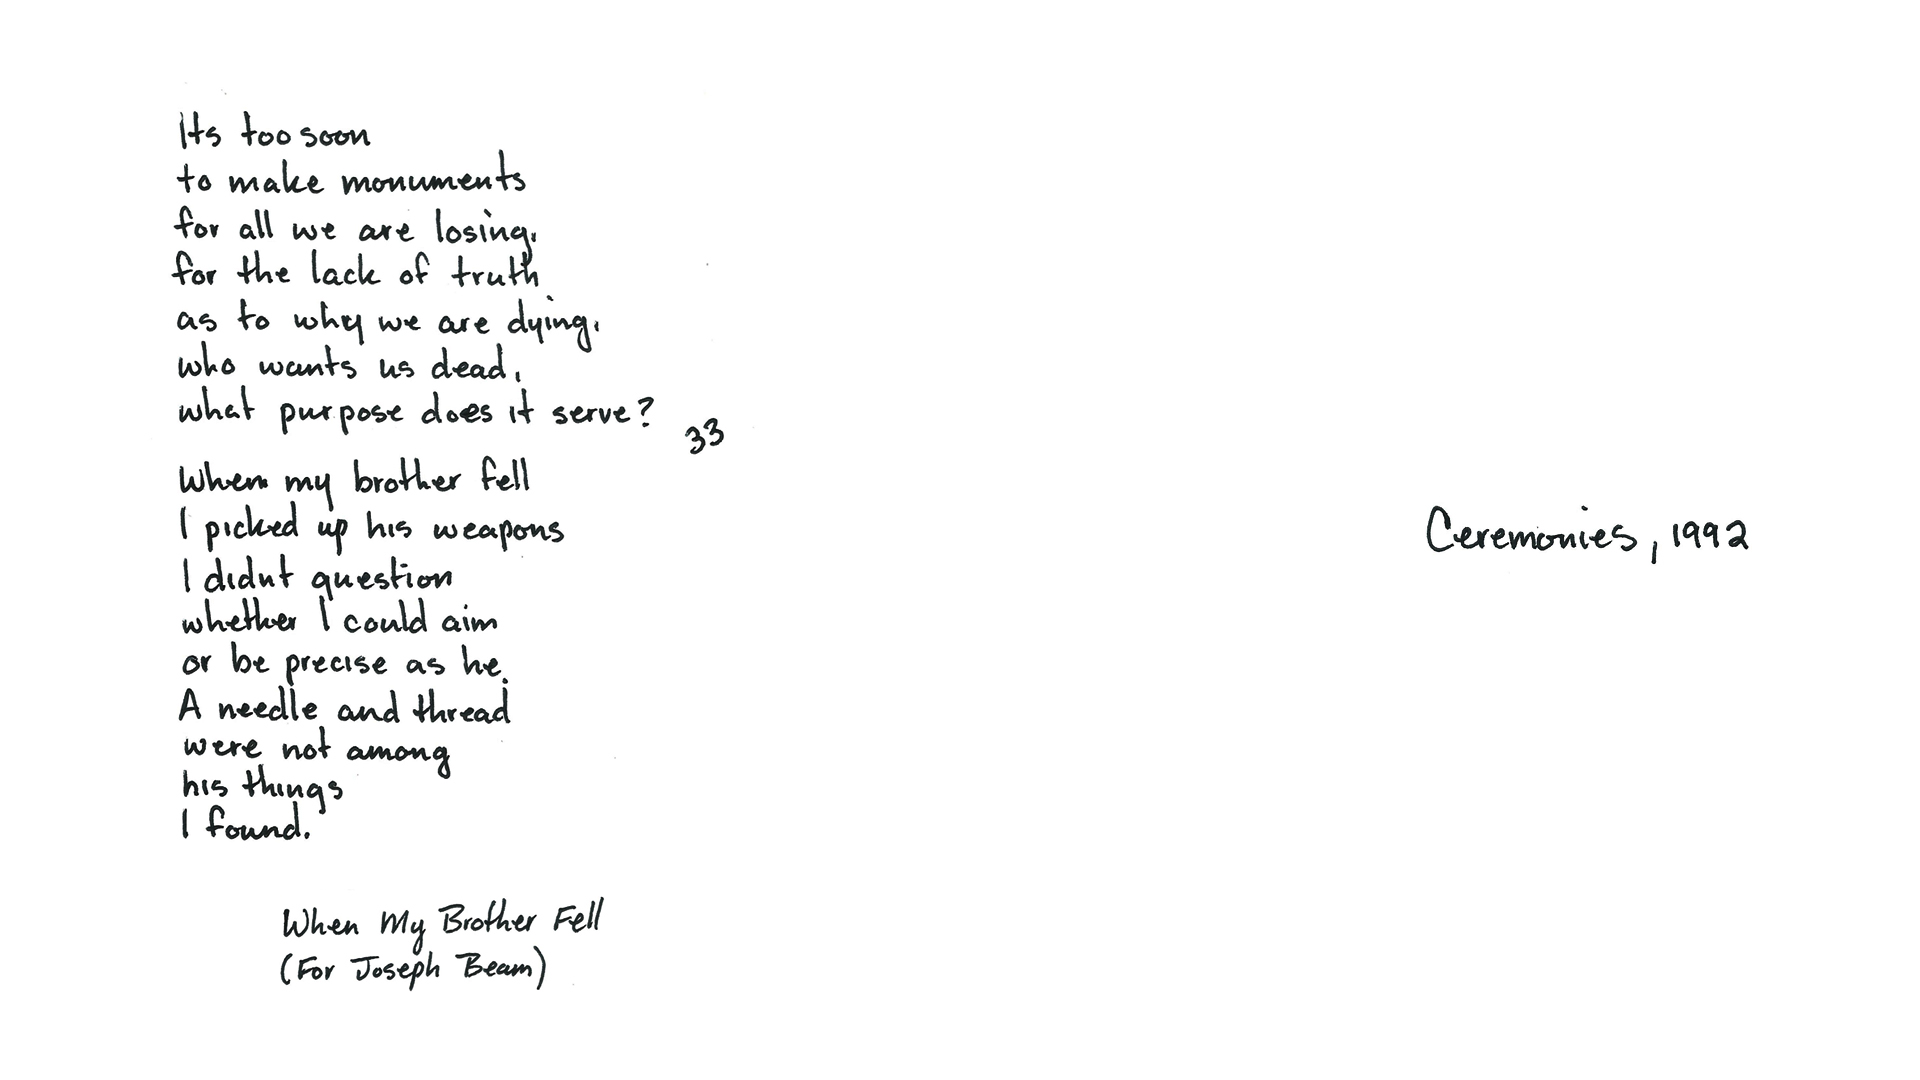 Its too soon
to make monuments
for all we are losing,
for the lack of truth
as to why we are dying,
who wants us dead,
what purpose does it serve?
33
When my brother fell
I picked up his weapons
I didnt question
whether I could aim
or be precise as he.
A needle and thread
were not among
his things
I found.
When My Brother Fell
(For Joseph Beam)
Ceremonies, 1992